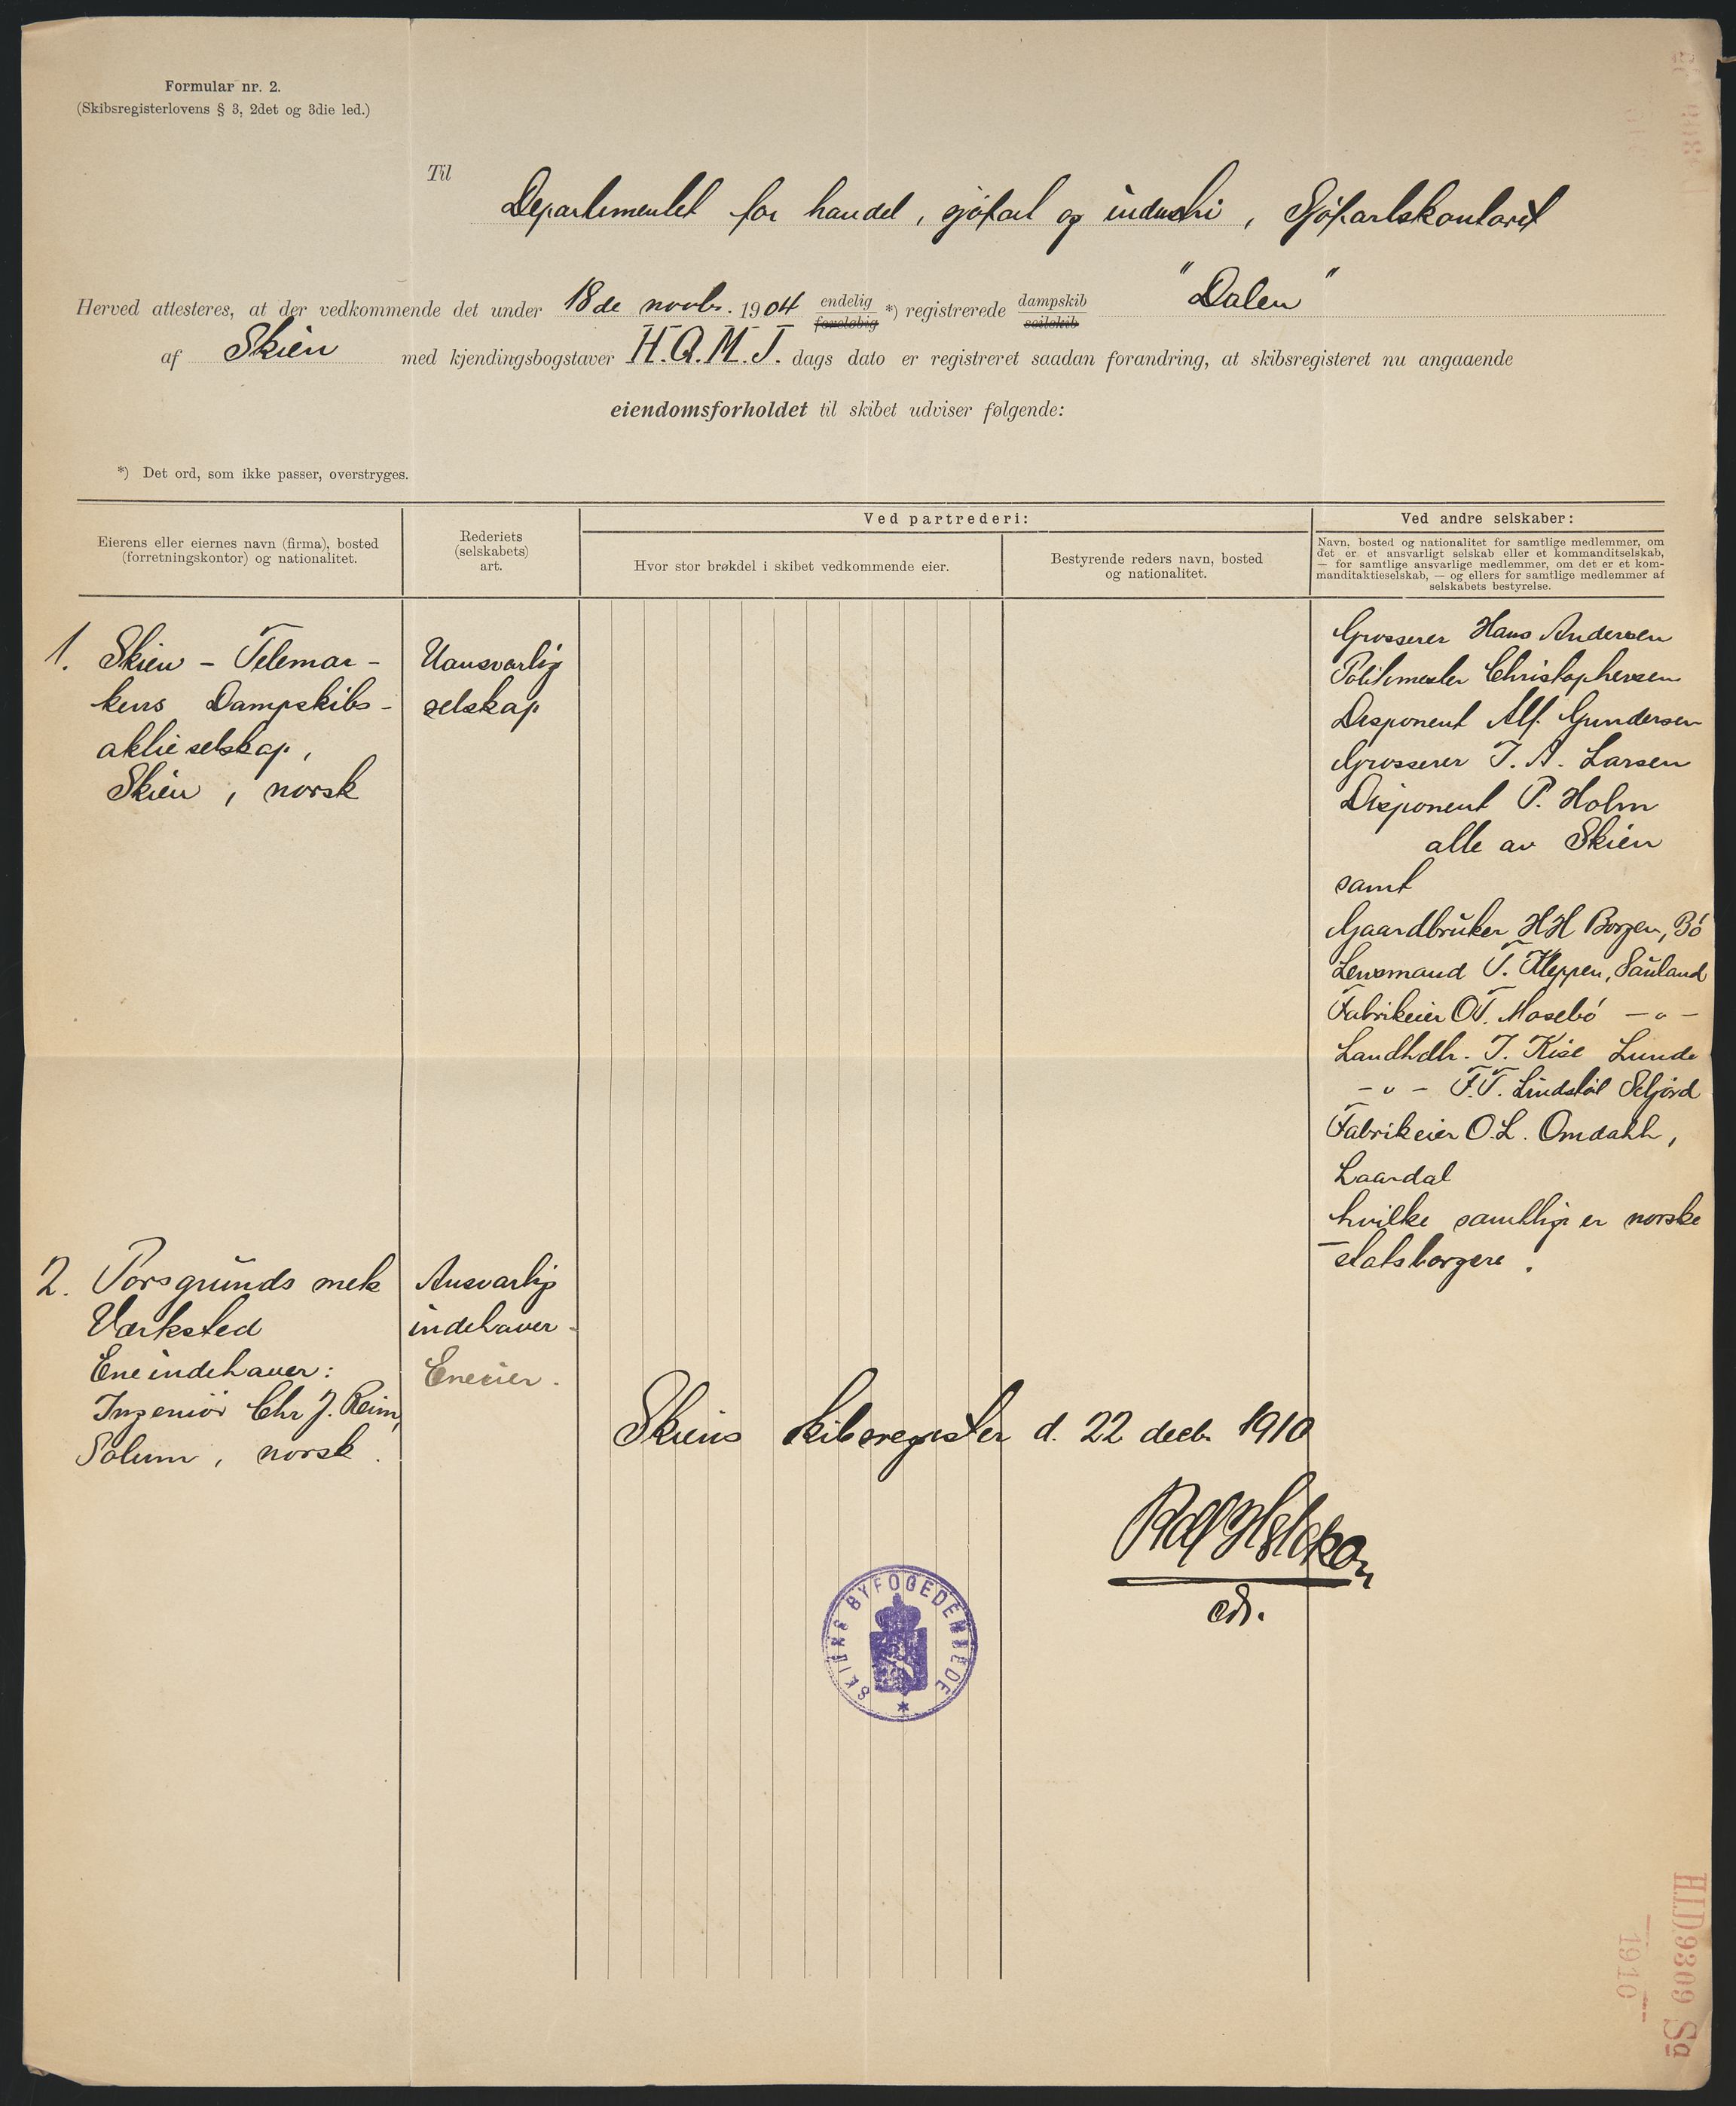 Formular nr. 2.
(Skibsregisterlovens § 3, 2det og 3die led.)
Til
Departementet for handel, sjøfart og industri, Sjøfartskontoret
Herved attesteres, at der vedkommende det under 18de novbr. 1904 endelig foreløbig *) registrerede dampskib seilskib "Dalen"
af Skien med kjendingsbogstaver H.Q.M.J. dags dato er registreret saadan forandring, at skibsregisteret nu angaaende
eiendomsforholdet til skibet udviser følgende:
*) Det ord, som ikke passer, overstryges.
Eierens eller eiernes navn (firma), bosted
(forretningskontor) og nationalitet.
Rederiets
(selskabets)
art.
Ved partrederi:
Hvor stor brøkdel i skibet vedkommende eier.
Bestyrende reders navn, bosted
og nationalitet.
Ved andre selskaber:
Navn, bosted og nationalitet for samtlige medlemmer, om
det er et ansvarligt selskab eller et kommanditselskab,
— for samtlige ansvarlige medlemmer, om det er et kom-
manditaktieselskab, — og ellers for samtlige medlemmer af
selskabets bestyrelse.
1. Skien - Telemar-
kens Dampskibs-
aktieselskap,
Skien, norsk
Uansvarlig
selskap
Grosserer Hans Andersen
Politimester Christophersen
Disponent Alf. Gundersen
Grosserer J. A. Larsen
Disponent P. Holm
alle av Skien
samt
Gaardbruker HH Borgen, Bö
Lensmand T. Kleppen, Sauland
Fabrikeier OT. Mosebö — " —
Landhdlr. J. Kise Lunde
- " - F.T. Lindstöl Seljord
Fabrikeier O.L. Omdahl,
Laardal
hvilke samtlige er norske
statsborgere.
2. Porsgrunds mek
Værksted
Eneindehaver:
Ingeniør Chr J. Reim,
Solum, norsk.
Ansvarlig
indehaver
Eneeier.
Skiens skibsregister d. 22 decbr 1910
SKIENS BYFOGEDEMBEDE
HID9309 Sa
1910